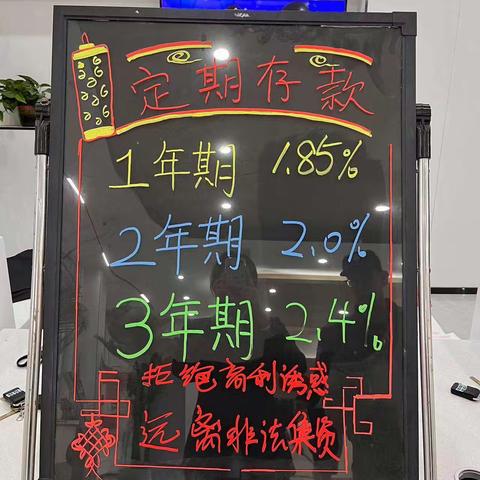 定期存款
1年期 1.85%
2年期 2.0%
3年期 2.4%
拒绝高利诱惑
远离非法集资